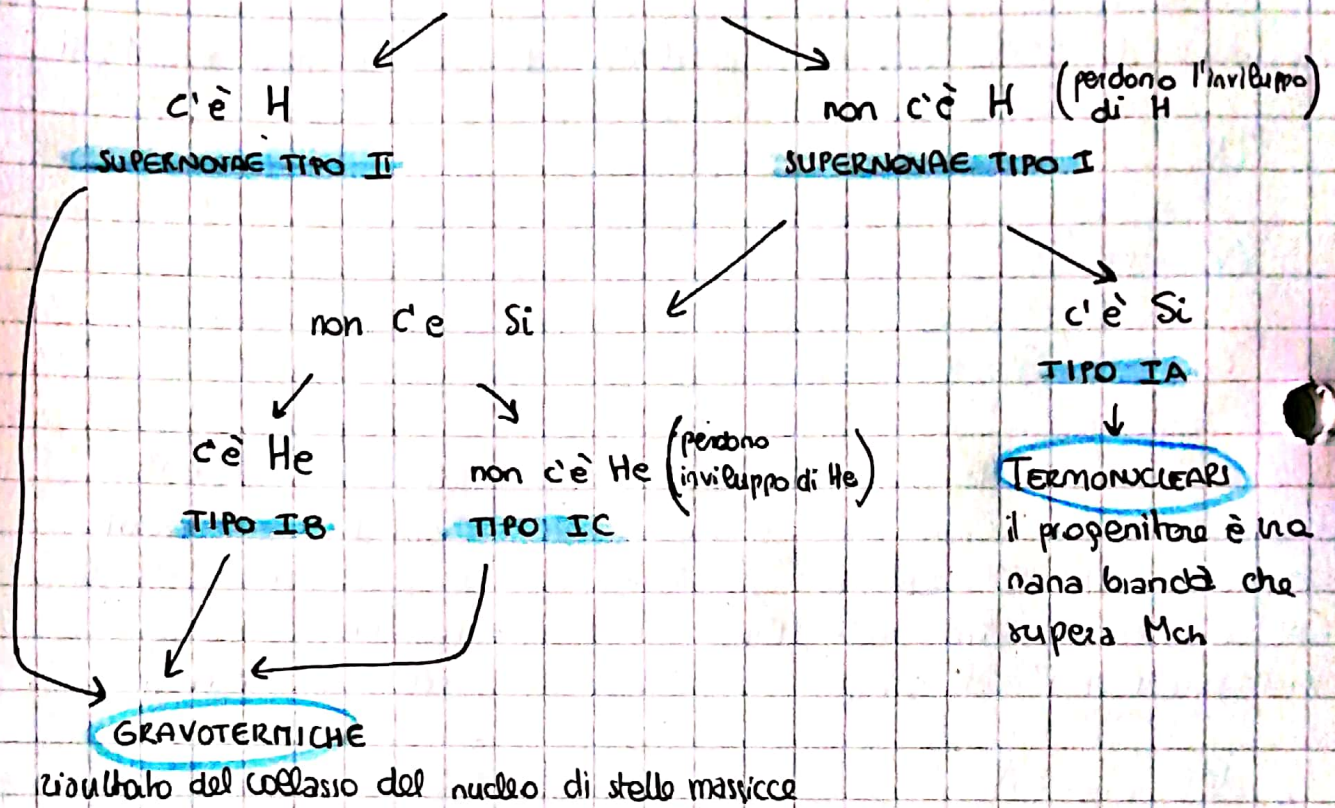 c'è H
non c'è H (perdono l'inviluppo di H)
SUPERNOVAE TIPO II
SUPERNOVAE TIPO I
non c'e Si
c'è Si
TIPO IA
c'è He
non c'è He (perdono inviluppo di He)
TIPO IB
TIPO IC
TERMONUCLEARI
il progenitore è una
nana bianca che
supera Mch
GRAVOTERMICHE
risultato del collasso del nucleo di stelle massicce